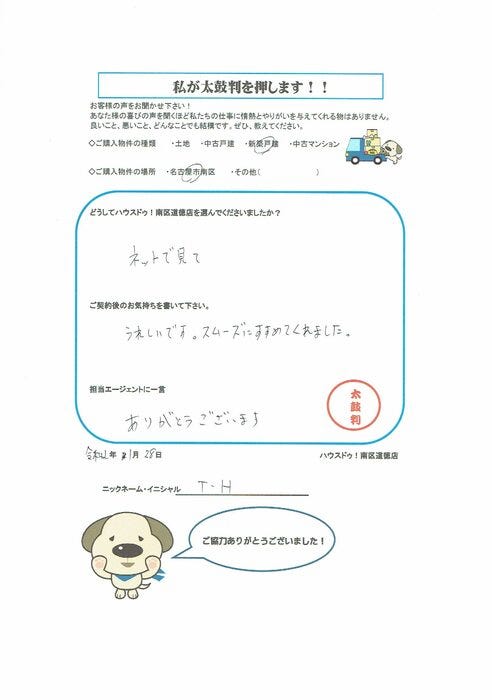 私が太鼓判を押します！！
お客様の声をお聞かせ下さい！
あなた様の喜びの声を聞くほど私たちの仕事に情熱とやりがいを与えてくれる物はありません。
良いこと、悪いこと、どんなことでも結構です。ぜひ、教えてください。
◇ご購入物件の種類 ・土地 ・中古戸建 ・新築戸建 ・中古マンション
◇ご購入物件の場所 ・名古屋市南区 ・その他（ ）
どうしてハウスドゥ！南区道徳店を選んでくださいましたか？
ネットで見て
ご契約後のお気持ちを書いて下さい。
うれしいです。スムーズにすすめてくれました。
担当エージェントに一言
ありがとうございます
太鼓判
年 1月 28日
ハウスドゥ！南区道徳店
ニックネーム・イニシャル T・H
ご協力ありがとうございました！